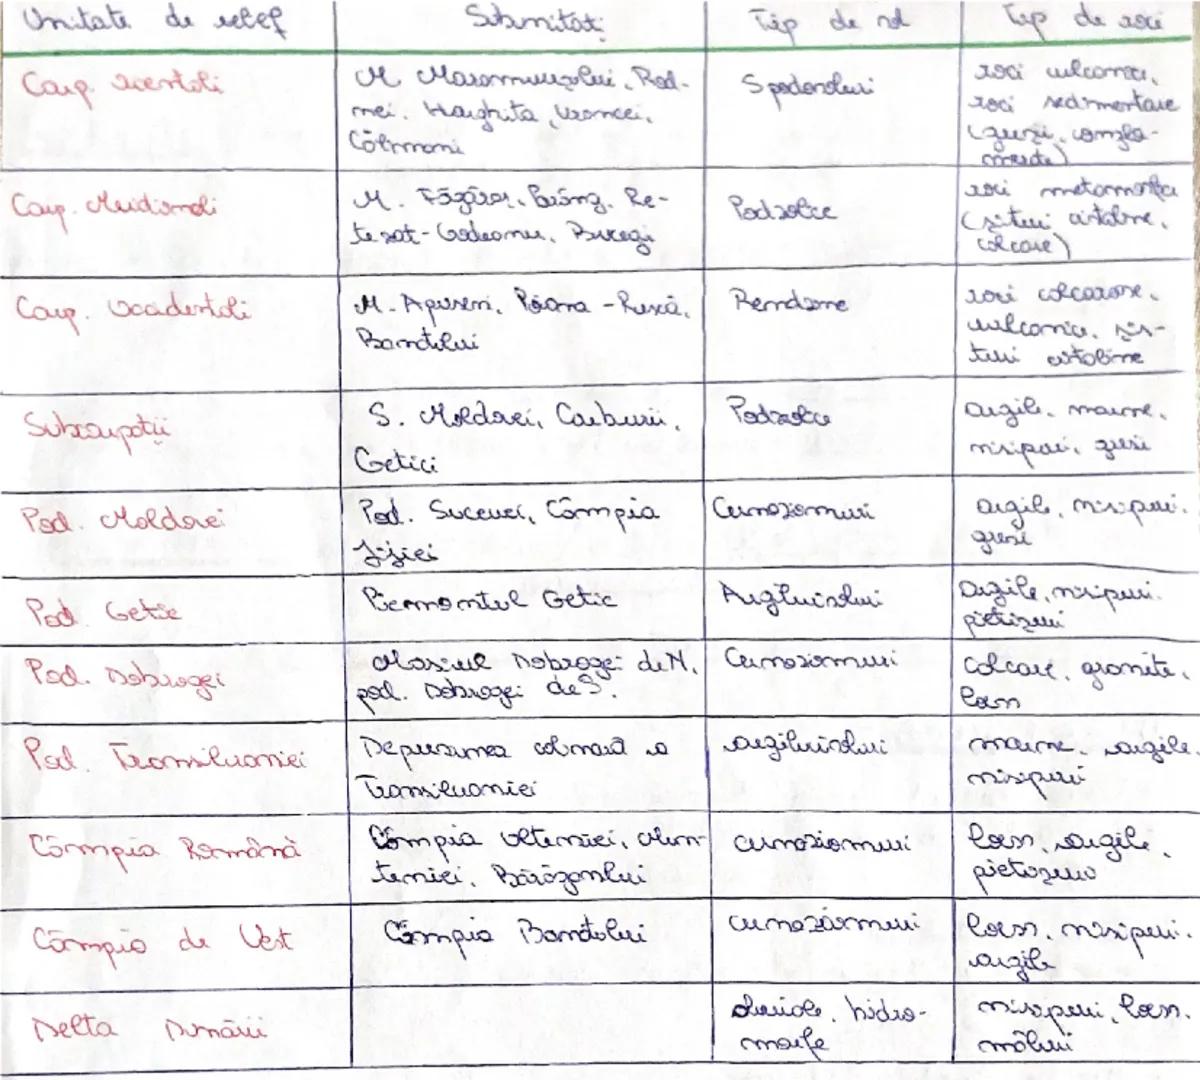 Unitate de relief
Subunități
Tip de sol
Tip de roci
Carp. orientali
M. Maramureșului, Rod-
nei, Harghita, Vrancei,
Călimani
Spodosoluri
roci vulcanice,
roci sedimentare
(gresii, conglo-
merate)
Carp. Meridionali
M. Făgăraș, Parâng, Re-
tezat-Godeanu, Bucegi
Podzolice
roci metamorfice
(șisturi cristaline,
calcare)
Carp. Occidentali
M. Apuseni, Poiana-Ruscă,
Banatului
Rendzine
roci calcaroase,
vulcanice, șis-
turi cristaline
Subcarpații
S. Moldovei, Curburii,
Getici
Podzolice
argile, marne,
nisipuri, gresii
Pod. Moldovei
Pod. Sucevei, Câmpia
Jijiei
Cernoziomuri
argile, nisipuri,
gresii
Pod. Getic
Piemontul Getic
Argiluvisoluri
Argile, nisipuri,
pietrișuri
Pod. Dobrogei
Masivul Dobrogei de N,
pod. Dobrogei de S.
Cernoziomuri
Calcare, granite,
loess
Pod. Transilvaniei
Depresiunea colinară a
Transilvaniei
argiluvisoluri
marne, argile,
nisipuri
Câmpia Română
Câmpia Olteniei, Mun-
teniei, Bărăganului
cernoziomuri
loess, argile,
pietrișuri
Câmpia de Vest
Câmpia Banatului
cernoziomuri
loess, nisipuri,
argile
Delta Dunării
aluviale, hidro-
morfe
nisipuri, loess,
mâluri